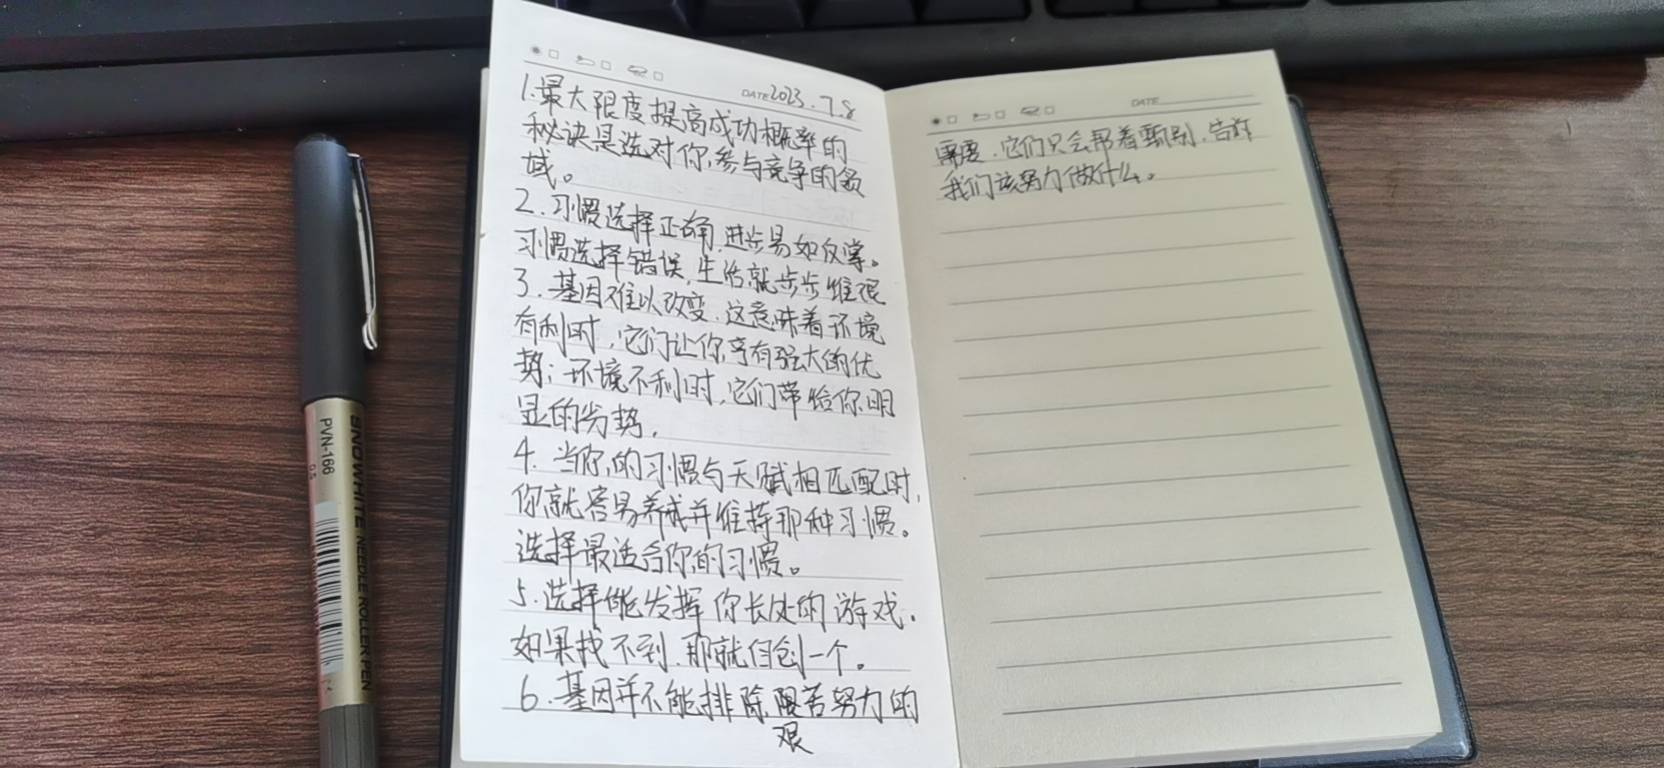 DATE 2023.7.8
1.最大限度提高成功概率的
秘诀是选对你参与竞争的领
域。
2.习惯选择正确,进步易如反掌。
习惯选择错误,生活就步步维艰
3.基因难以改变.这意味着环境
有利时,它们让你享有强大的优
势;环境不利时,它们带给你明
显的劣势.
4.当你的习惯与天赋相匹配时,
你就容易养成并维持那种习惯。
选择最适合你的习惯。
5.选择能发挥你长处的游戏.
如果找不到.那就自创一个。
6.基因并不能排除 苦努力的
艰
DATE
需要.它们只会帮着甄别.告诉
我们该努力做什么。
SNOWHITE NEEDLE ROLLER PEN
PVN-166
0.5